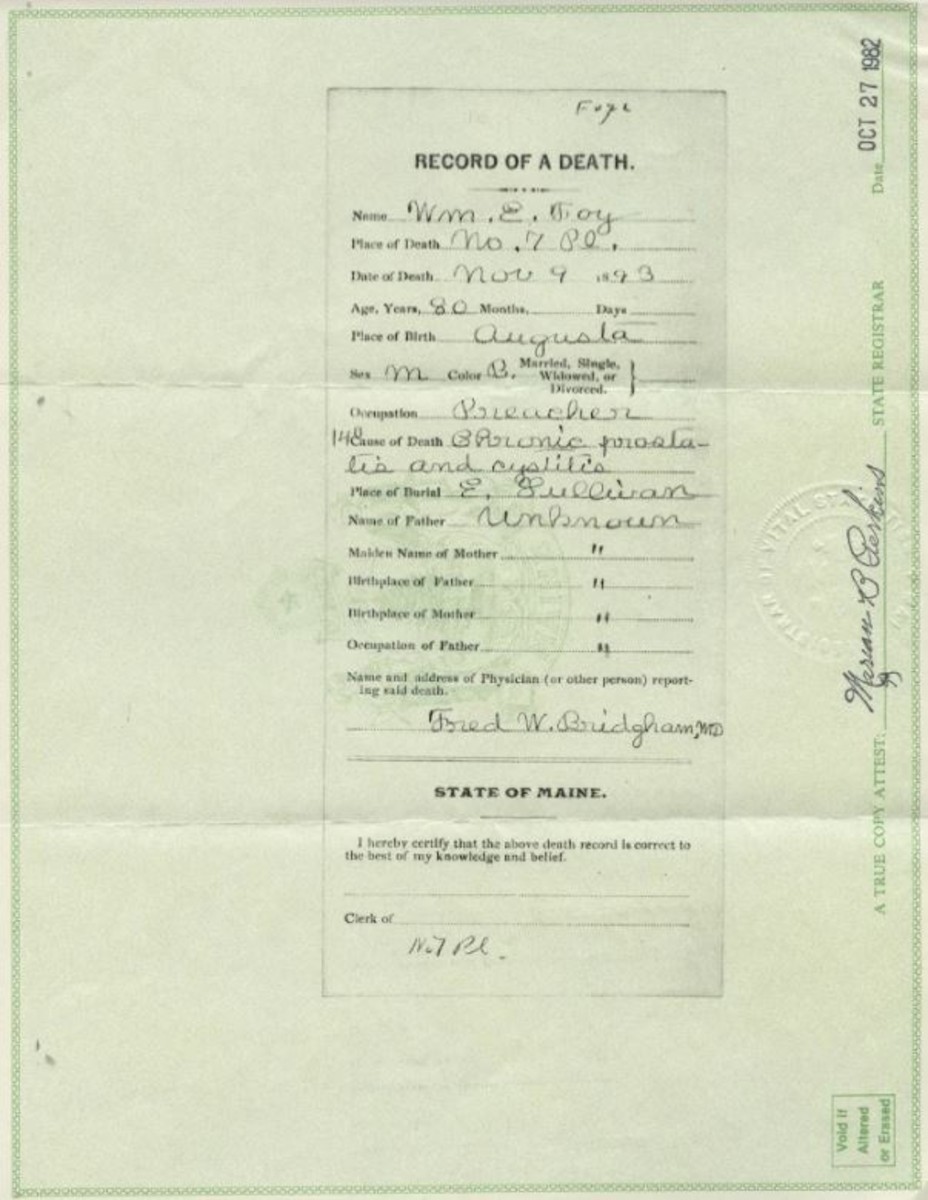 Foye
RECORD OF A DEATH.
Name Wm. E. Foy
Place of Death No. 7 Pl.
Date of Death Nov 9 1893
Age, Years, 80 Months, Days
Place of Birth Augusta
Sex M Color B. Married, Single,
Widowed, or
Divorced.
Occupation Preacher
Cause of Death Chronic prosta-
tis and cystitis
Place of Burial E. Sullivan
Name of Father Unknown
Maiden Name of Mother "
Birthplace of Father "
Birthplace of Mother "
Occupation of Father "
Name and address of Physician (or other person) report-
ing said death.
Fred W. Bridgham, MD
STATE OF MAINE.
I hereby certify that the above death record is correct to
the best of my knowledge and belief.
Clerk of
No7 Pl.
A TRUE COPY ATTEST: Marian R Perkins STATE REGISTRAR Date OCT 27 1982
Void if
Altered
or Erased